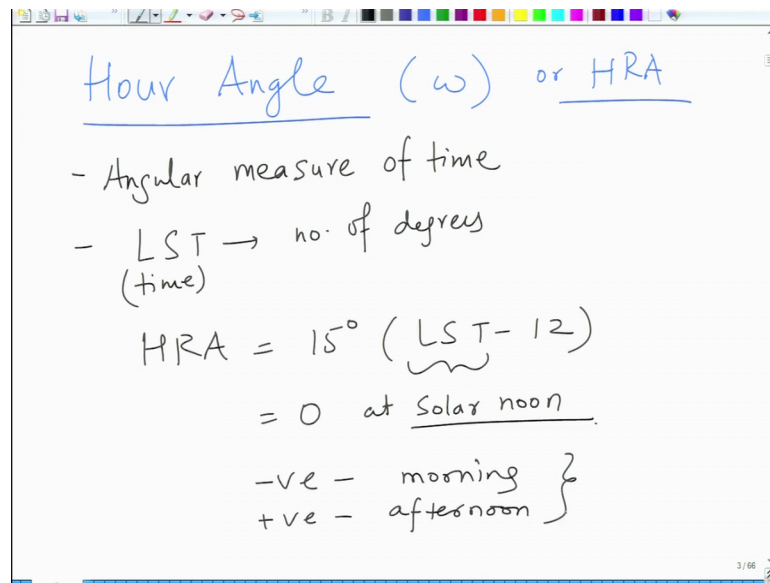 Hour Angle (ω) or HRA
- Angular measure of time
- LST → no. of degrees
(time)
HRA = 15° (LST - 12)
= 0 at Solar noon.
-ve - morning
+ve - afternoon
3 / 66